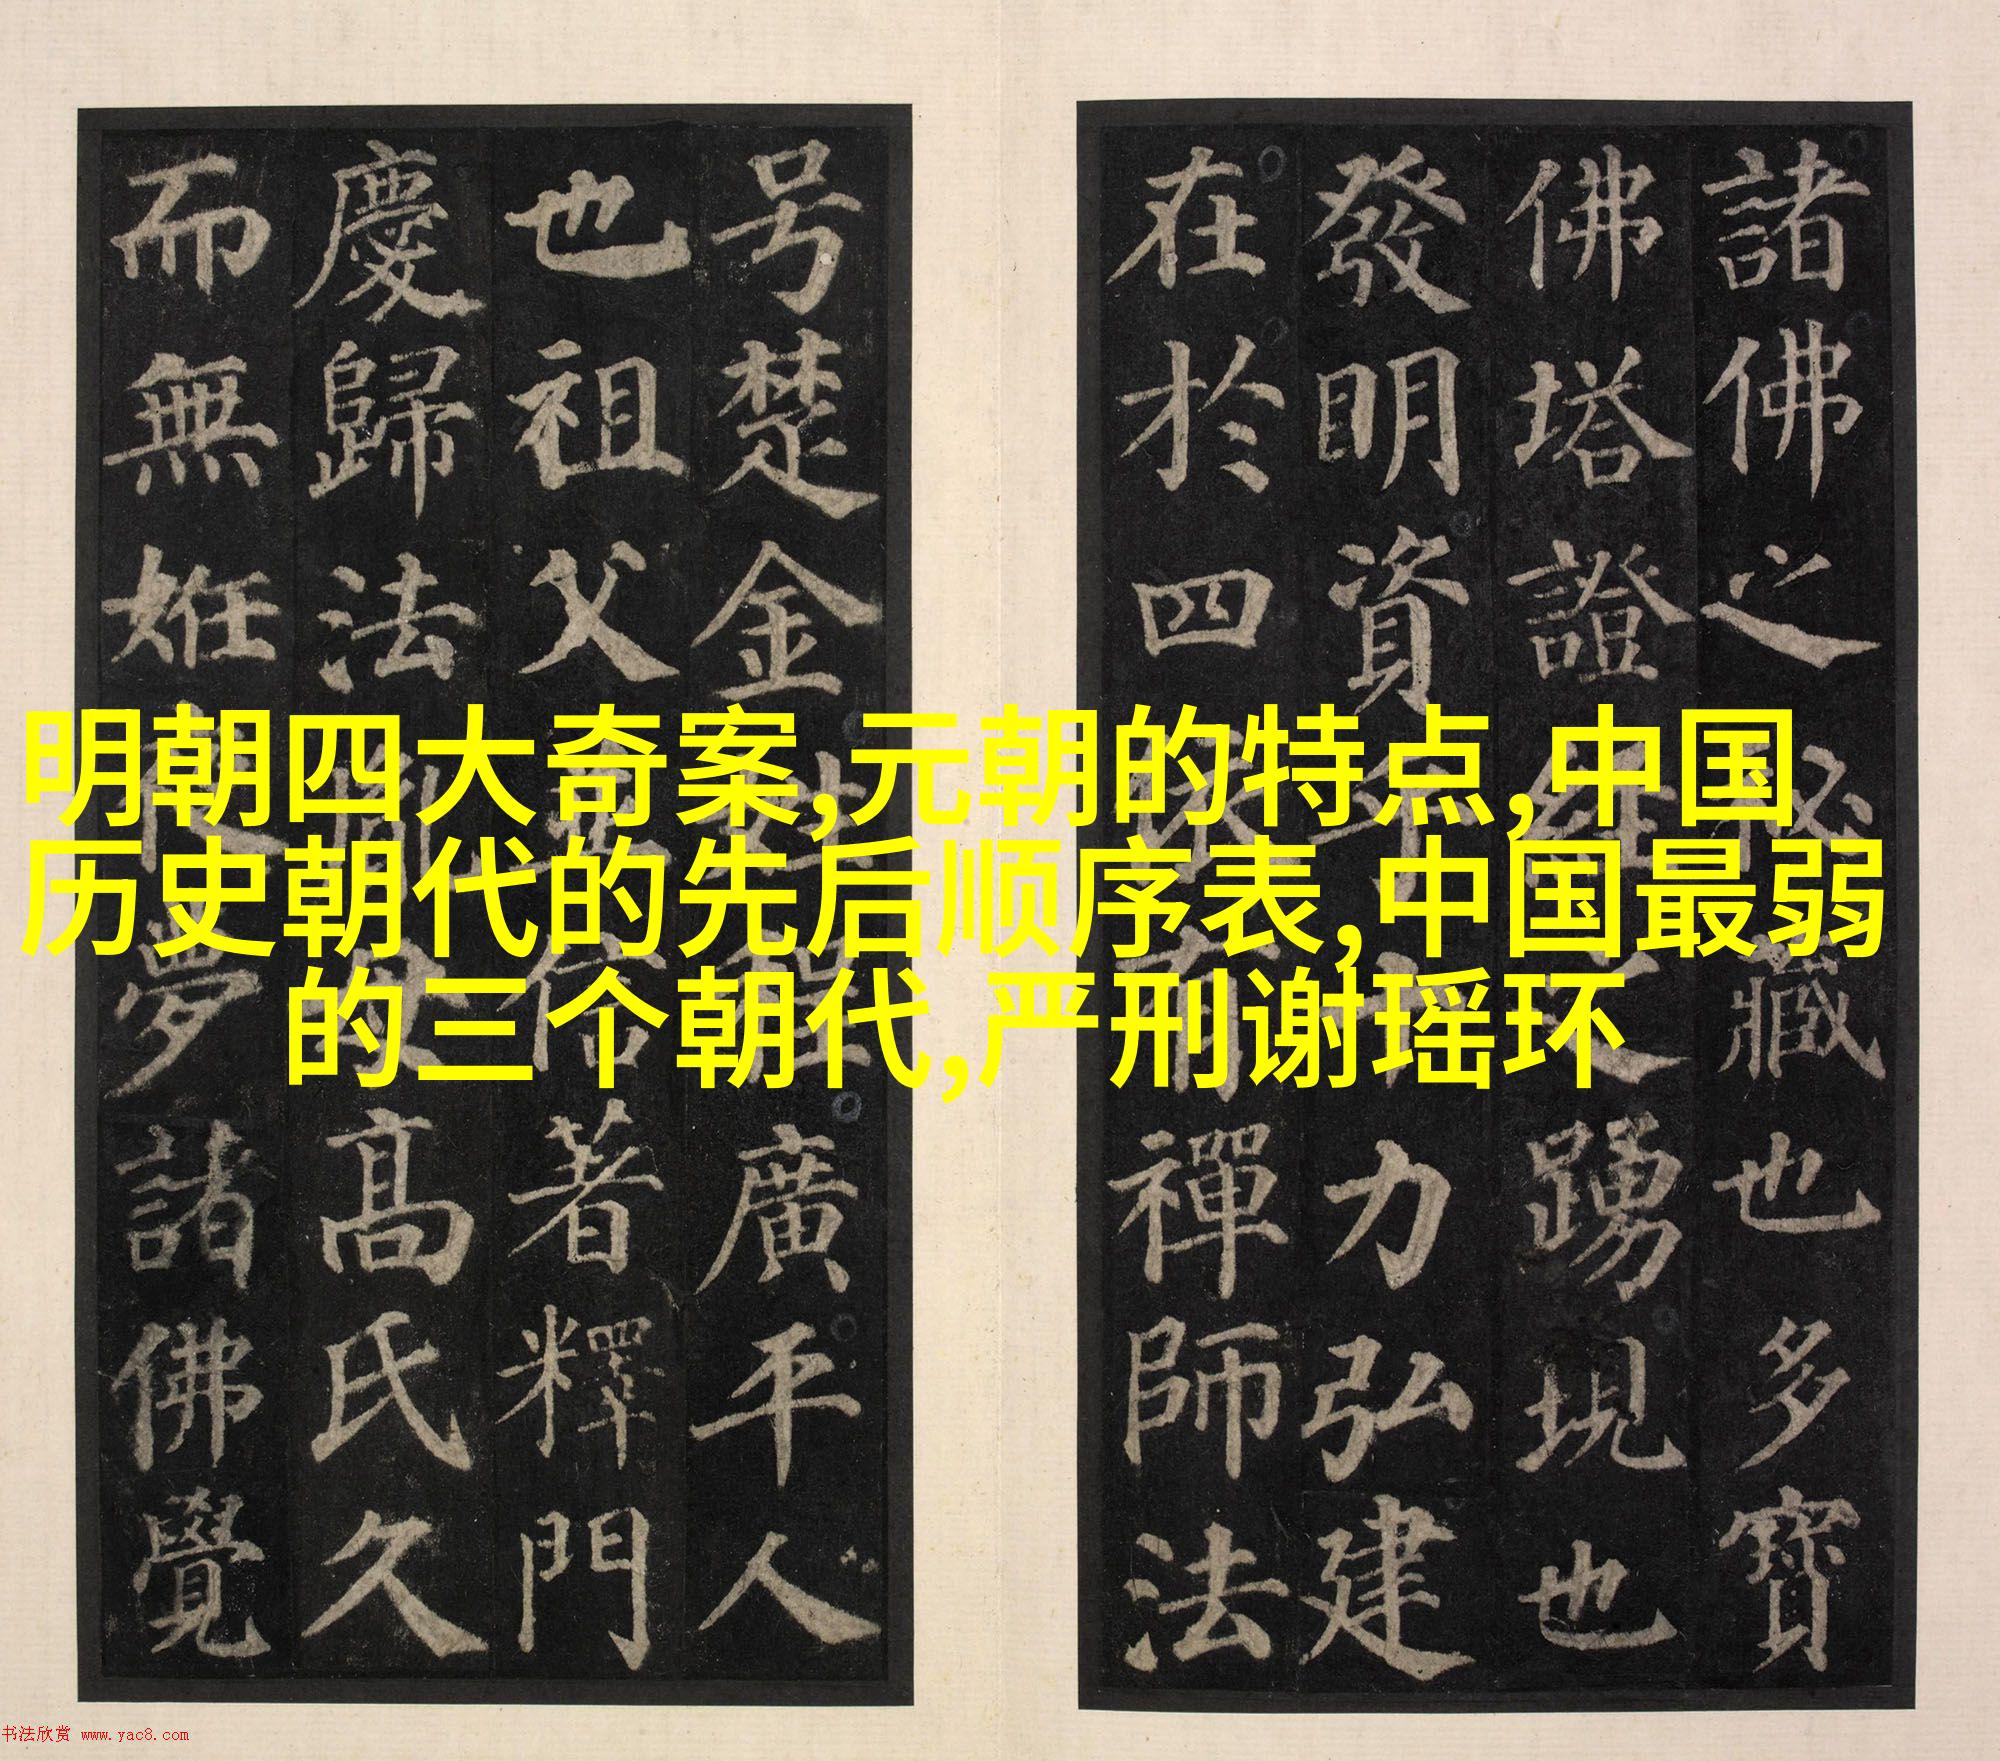 諸佛之秘藏也多寶
佛塔證經之踴現也
發明資乎十力弘建
在於四依有禪師法
号楚金姓程廣平人
也祖父並信著釋門
慶歸法胤母高氏久
而無姙夜夢諸佛覺
明朝四大奇案,元朝的特点,中国
历史朝代的先后顺序表,中国最弱
的三个朝代,严刑谢瑶环
书法欣赏 www.yac8.com